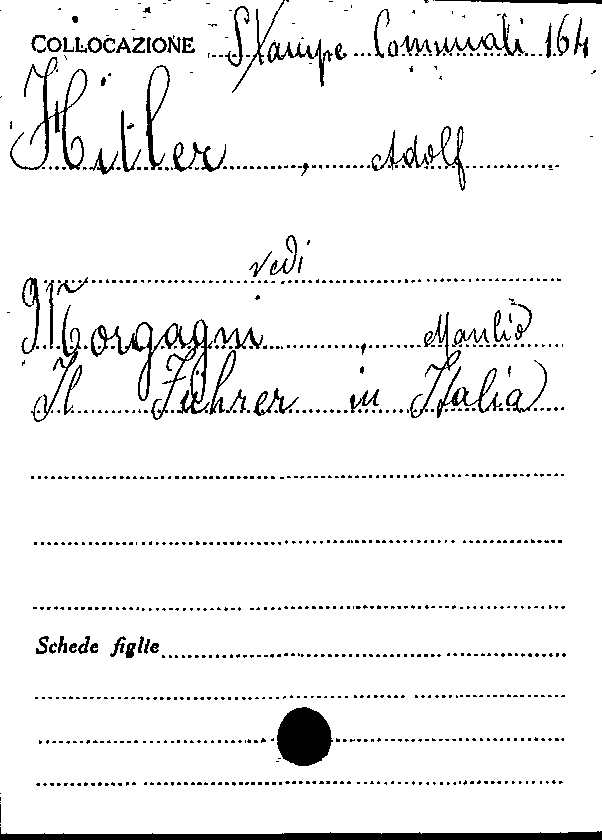 COLLOCAZIONE Stampe Comunali 164
Hitler, Adolf
vedi
Morgagni, Manlio
Il Führer in Italia
Schede figlie